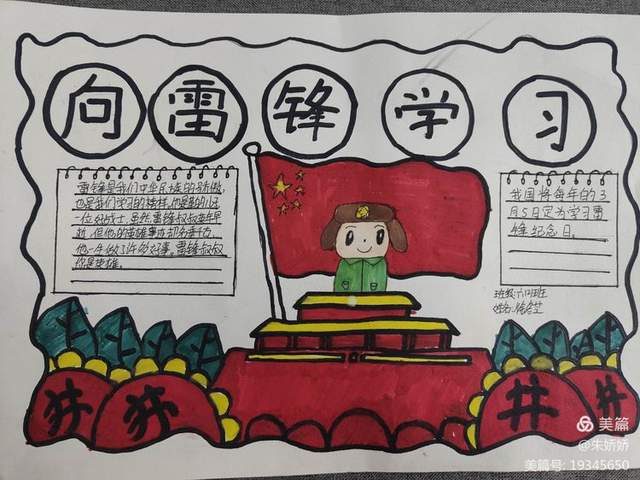 向雷锋学习
雷锋是我们中华民族的骄傲,
也是我们学习的榜样,他是
一位好战士,虽然雷锋叔叔英年早
逝,但他的英雄事迹却名垂千
他一生做了许多好事,雷锋叔叔
你是英雄。
我国将每年的3
月5日定为学习雷
锋纪念日。
班级:六
姓名:
美篇
@朱娇娇
美篇号: 19345650